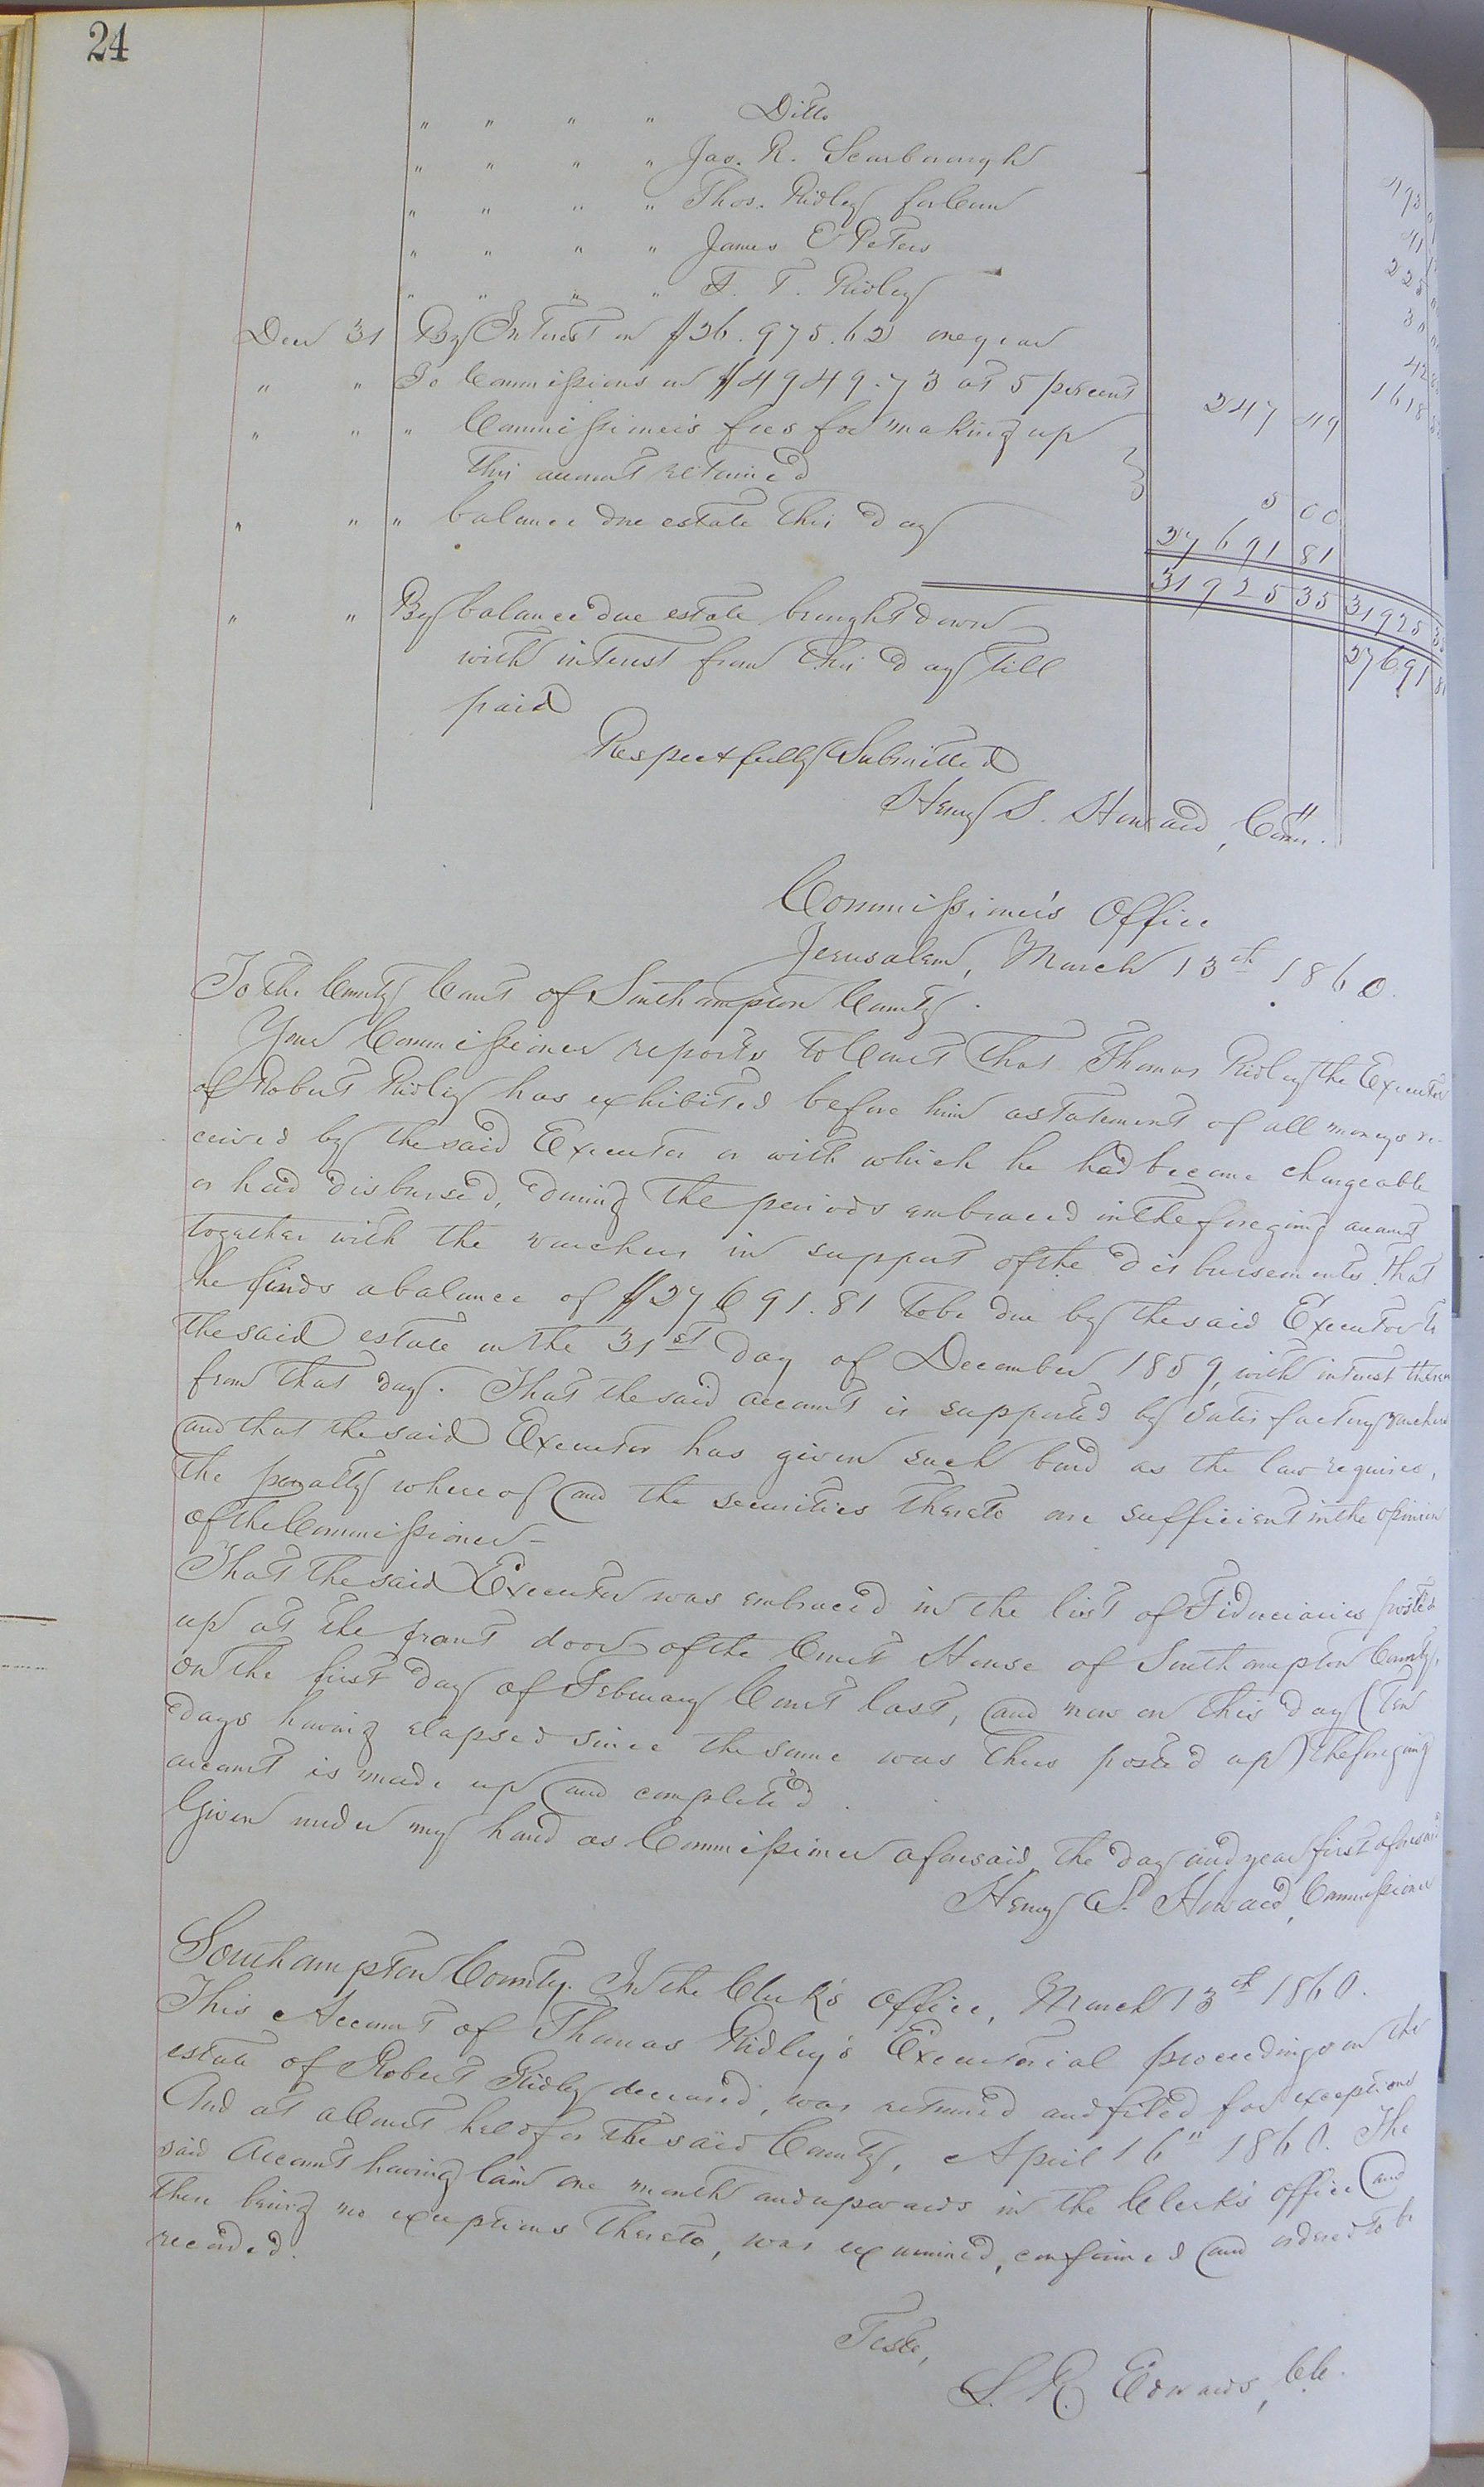 24
" " " " Ditto
" " " " Jas. R. Scarborough
" " " " Thos. Ridley for Corn 493
" " " " James E Peters 41
" " " " F. T. Ridley 225
Decr 31 By Interest on $26.975.62 one year 1618
" " To Commissions on $4949.73 at 5 percent 247 49
" " " Commissioners fees for making up
this account returned 5 00
" " " balance due estate this day 27691 81
31925 35 31925 35
" " By balance due estate brought down 27691 81
with interest from this day till
paid
Respectfully Submitted
Henry S. Howard, Comr.
Commissioner's Office
Jerusalem, March 13th 1860.
To the County Court of Southampton County.
Your Commissioner reports to Court that Thomas Ridley the Executor
of Robert Ridley has exhibited before him a statement of all moneys re-
ceived by the said Executor or with which he had become chargeable
or had disbursed, during the periods embraced in the foregoing account
together with the vouchers in support of the disbursements. That
he finds a balance of $27691.81 to be due by the said Executor to
the said estate on the 31st day of December 1859, with interest thereon
from that day. That the said account is supported by satisfactory vouchers
and that the said Executor has given such bond as the law requires,
the penalty whereof and the securities thereto are sufficient in the opinion
of the Commissioner -
That the said Executor was embraced in the list of Fiduciaries posted
up at the front door of the Court House of Southampton County,
on the first day of February Court last, and now on this day (Ten
days having elapsed since the same was thus posted up) the foregoing
account is made up and completed.
Given under my hand as Commissioner aforesaid, the day and year first aforesaid
Henry S. Howard, Commissioner
Southampton County. In the Clerk's Office, March 13th 1860.
This Account of Thomas Ridley's Executorial proceedings on the
estate of Robert Ridley deceased, was returned and filed for exceptions
And at a Court held for the said County, April 16" 1860. The
said Account having lain one month and upwards in the Clerk's office and
there being no exceptions thereto, was examined, confirmed and ordered to be
recorded.
Teste,
L. R. Edwards, Clk.